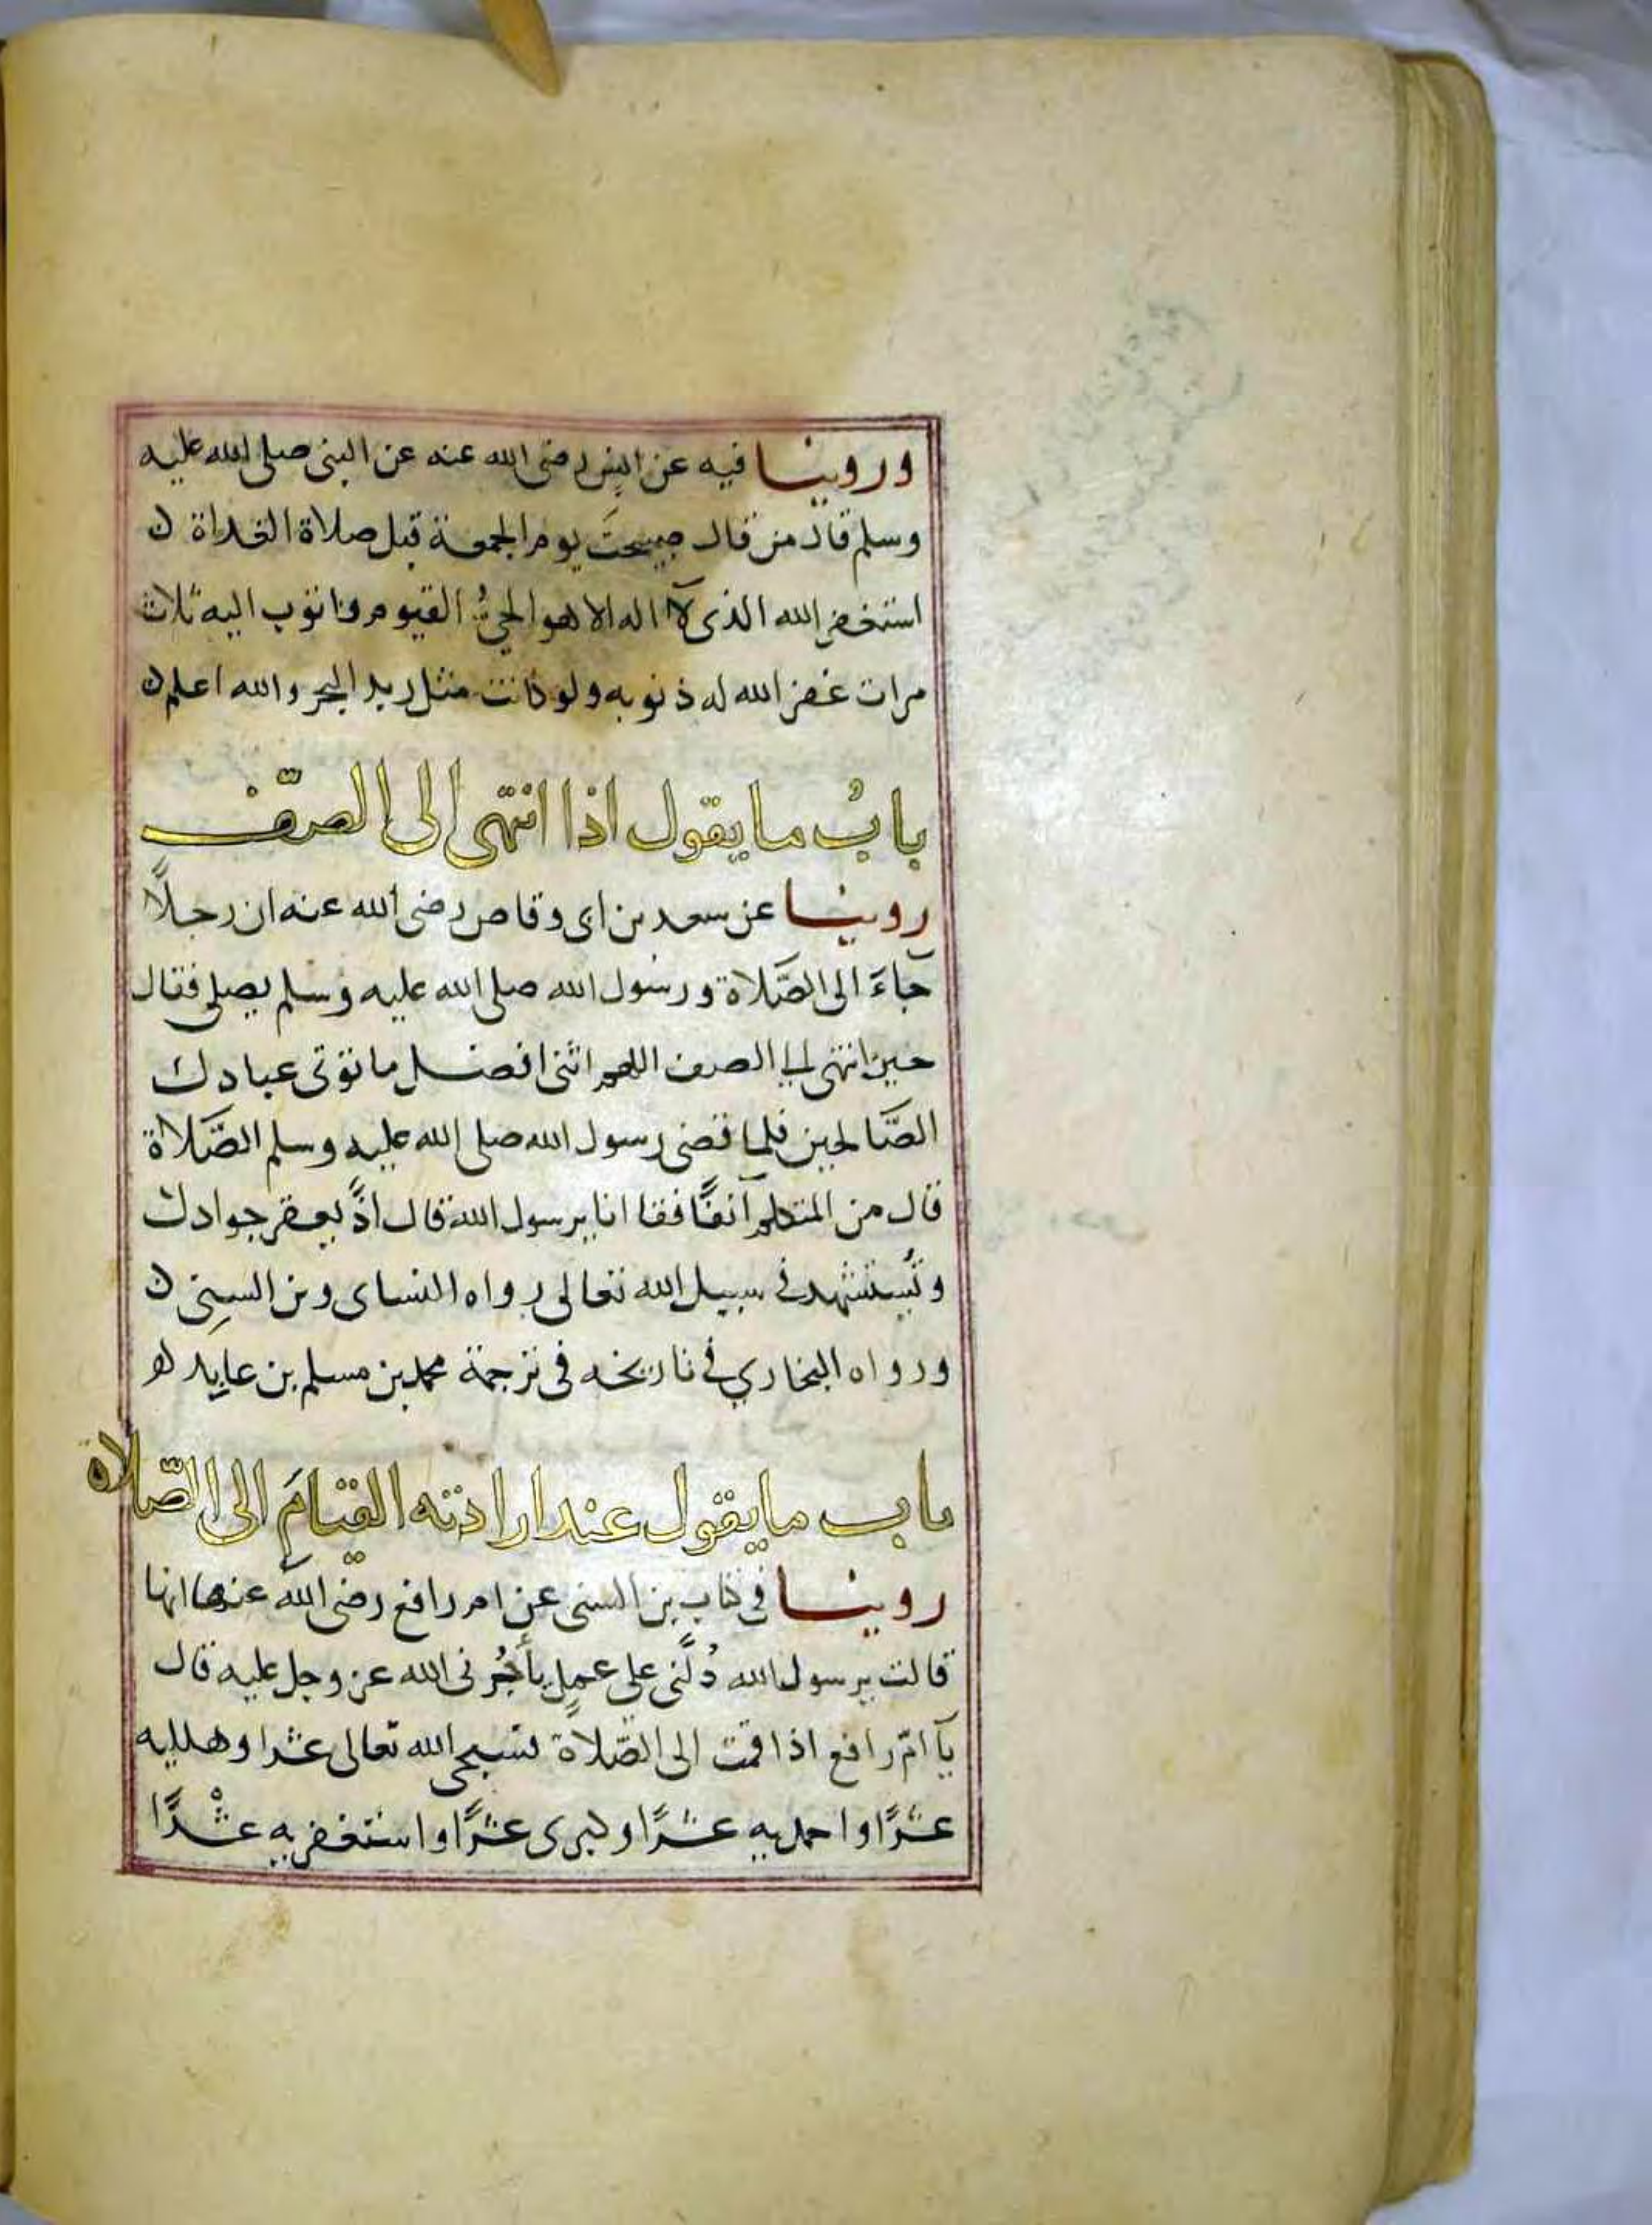 وروينا فيه عن انس رضى الله عنه عن النبى صلى الله عليه
وسلم قال من قال صبيحت يوم الجمعة قبل صلاة الغداة ن
استغفر الله الذى لآ اله الا هو الحيُّ القيوم واتوب اليه ثلاث
مرات غفر الله له ذنوبه ولو كانت مثل زبد البحر والله اعلم ن
بابُ ما يقول اذا انتهى الى الصّف
روينا عن سعد بن ابى وقاص رضى الله عنه ان رجلاً
جآءَ الى الصَّلاة ورسول الله صلى الله عليه وسلم يصلى فقال
حين انتهى الى الصف اللهم اتنى افضل ما توتى عبادك
الصَّالحين فلما قضى رسول الله صلى الله عليه وسلم الصَّلاة
قال من المتكلم آنفًا فقا انا يرسول الله قال اذًّ يعقر جوادك
وتُستشهد فى سبيل الله تعالى رواه النساى وبن السِنى ن
ورواه البخاري فى تاريخه فى ترجمة محمد بن مسلم بن عايد
باب ما يقول عند ارادته القيامَ الى الصّلاة
روينا فى كتاب بن السنى عن ام رافع رضى الله عنها انها
قالت يرسول الله دُلَّنى على عملٍ يأجُرنى الله عز وجل عليه قال
يآ امّ رافع اذا قمت الى الصّلاة فسبحى الله تعالى عشرا وهلليه
عشرًا واحمديه عشرًا وكبرى عشرًا واستغفريه عشْرًا